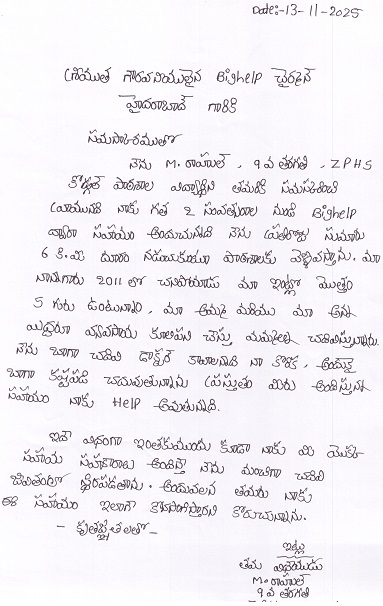 Date:- 13-11-2025
శ్రీయుత గౌరవనీయులైన BigHelp చైర్మెన్
హైదరాబాద్ గారికి
నమస్కారములతో
నేను M. రాహుల్, 9వ తరగతి, ZPHS
పాఠశాల విద్యార్థిని తమరికి నమస్కరించి
నాకు గత 2 సంవత్సరాల నుండి BigHelp
ద్వారా సహాయం అందుచున్నది నేను ప్రతిరోజు సుమారు
6 కి.మీ దూరం నడుచుకుంటూ పాఠశాలకు వెళ్ళివస్తాను. మా
నాన్నగారు 2011 లో చనిపోయాడు మా ఇంట్లో మొత్తం
5 గురు ఉంటున్నాం, మా అమ్మ మరియు మా అన్న
ఇద్దరూ వ్యవసాయ కూలిపని చేస్తు మమ్మల్ని చదివిస్తున్నారు.
నేను బాగా చదివి డాక్టర్ కావాలన్నది నా కోరిక, అందుకై
బాగా కష్టపడి చదువుతున్నాను ప్రస్తుతం మీరు అందిస్తున్న
సహాయం నాకు Help అవుతున్నది.
ఇదే విధంగా ఇంతకుముందు కూడా నాకు మీ యొక్క
సహాయ సహకారాలు అందిస్తే నేను మంచిగా చదివి
జీవితంలో స్థిరపడతాను. అందువలన తమరు నాకు
ఈ సహాయం ఇలాగే కొనసాగిస్తారని కోరుచున్నాను.
- కృతజ్ఞతలతో -
ఇట్లు
తమ విధేయుడు
M. రాహుల్
9వ తరగతి